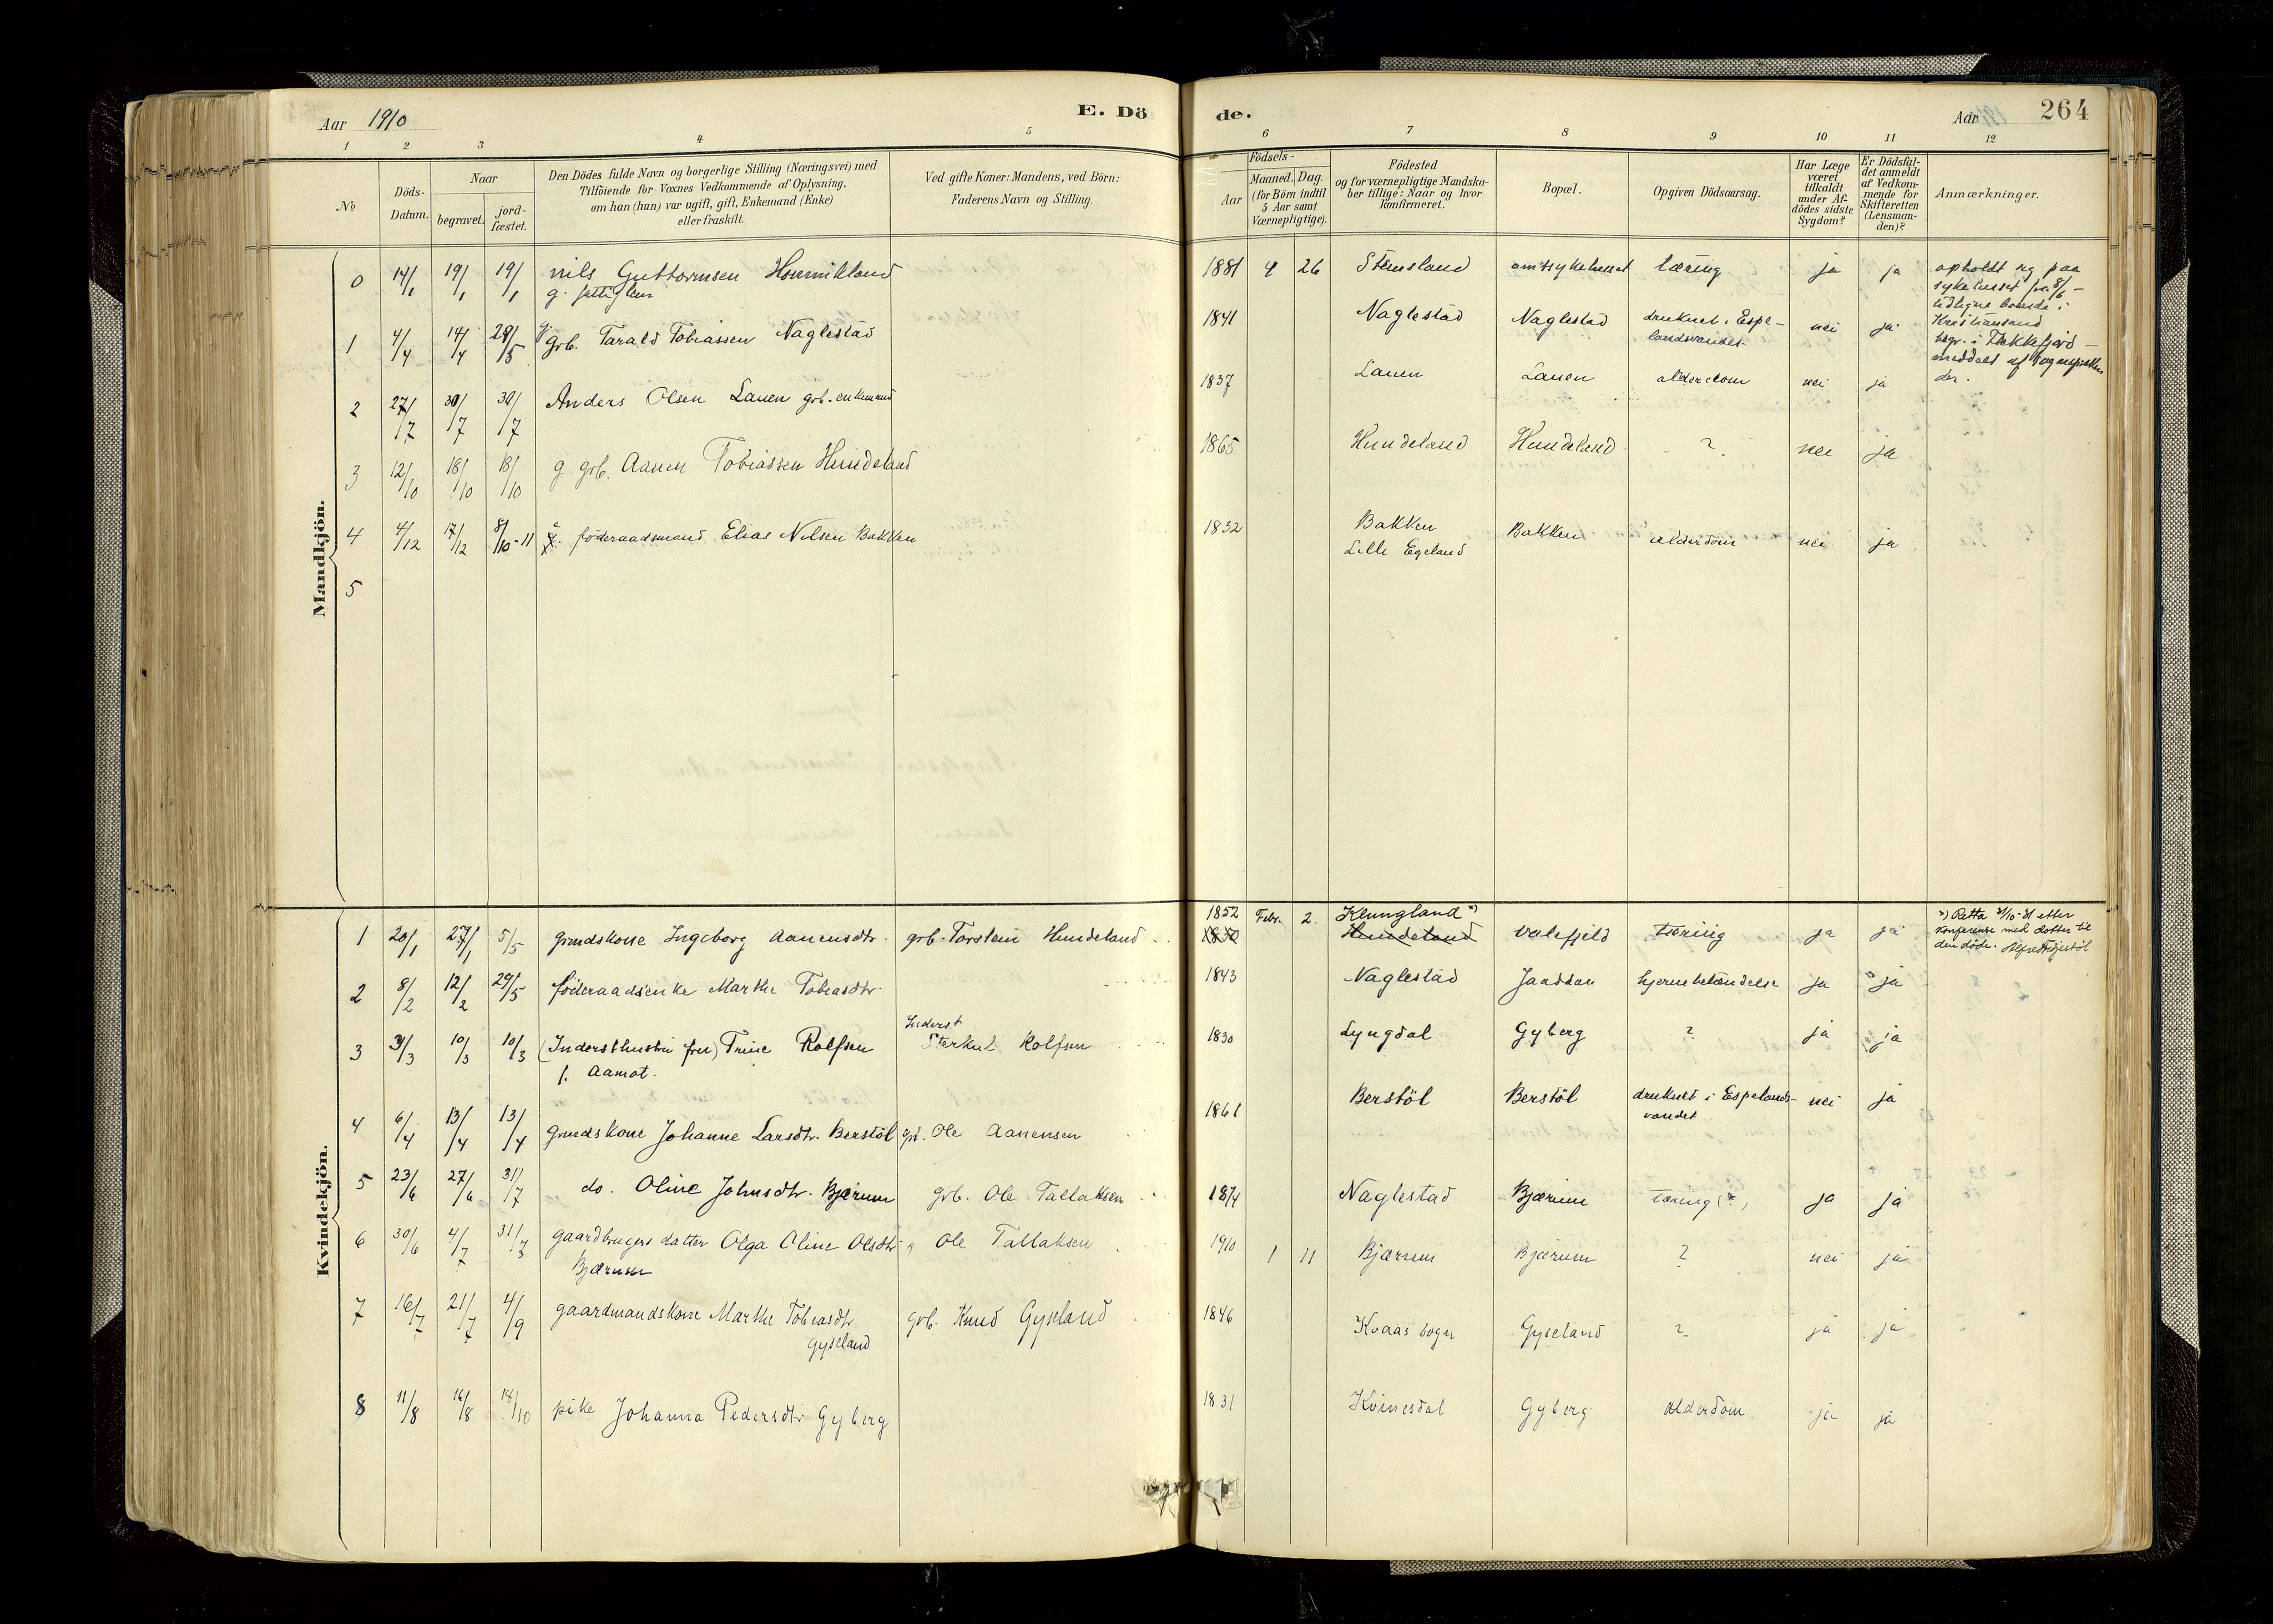 Aar 1910
E. Dö
de.
Aar 264
1 2 3 4 5 6 7 8 9 10 11 12
No
Döds-Datum.
Naar
begravet.
jord-fæstet.
Den Dödes fulde Navn og borgerlige Stilling (Næringsvei) med
Tilföiende for Voxnes Vedkommende af Oplysning,
om han (hun) var ugift, gift, Enkemand (Enke)
eller fraskilt.
Ved gifte Koner: Mandens, ved Börn:
Faderens Navn og Stilling.
Födsels-
Aar
Maaned. Dag.
(for Börn indtil
5 Aar samt
Værnepligtige).
Födested
og for værnepligtige Mandska-
ber tillige: Naar og hvor
konfirmeret.
Bopæl.
Opgiven Dödsaarsag.
Har Læge
været
tilkaldt
under Af-
dödes sidste
Sygdom?
Er Dödsfal-
det anmeldt
af Vedkom-
mende for
Skifteretten
(Lensman-
den)?
Anmærkninger.
Mandkjön.
0 14/1 19/1 19/1 nils Guttormsen 1881 4 26 Stensland amtssykehuset tæring ja ja opholdt sig paa
g. sykehuset fra 8/6 -
tidligere boende i
1 4/4 14/4 29/5 g grb. Tarald Tobiassen Naglestad 1841 Naglestad Naglestad druknet i Espe- nei ja Kristiansand
landsvandet begr. i Flekkefjord -
meddelt af sogneprestens
2 27/7 30/7 30/7 Anders Olsen Lauen grb. enkemand 1837 Lauen Lauen alderdom nei ja
3 12/10 18/10 18/10 g. grb. Aanen Tobiassen Hundeland 1865 Hundeland Hundeland - ? nei ja
4 4/12 17/12 8/10-11 föderaadsmand Elias Nilsen Bakken 1832 Bakken Bakken alderdom nei ja
Lille Egeland
5
Kvindekjön.
1 20/1 27/1 5/5 gmdskone Ingeborg Aanensdtr. grb. Torstein Hundeland 1852 Febr. 2. Klungland *) Valefjeld tæring ja ja *) Retta 4/10-31 etter
1850 Hundeland konferense med dotter til
den döde. Alfred
2 8/2 12/2 29/5 föderaadsenke Marthe Tobiasdtr. 1843 Naglestad Jaaddan hjernebetændelse ja ja
Inderst
3 3/3 10/3 10/3 (Indersthustru fru) Trine Rolfsen Sterkul Rolfsen 1830 Lyngdal Gyberg ? ja ja
f. Aamot.
4 6/4 13/4 13/4 gmdskone Johanne Larsdtr. Berstöl grb. Ole Aanensen 1861 Berstöl Berstöl druknet i Espelands- nei ja
vandet
5 23/6 27/6 31/7 do. Oline Johnsdtr. Bjærum grb. Ole Tallaksen 1874 Naglestad Bjærum tæring (?) ja ja
6 30/6 4/7 31/7 gaardbrugers datter Olga Oline Olsdtr. g Ole Tallaksen 1910 1 11 Bjærum Bjærum ? nei ja
Bjærum
7 16/7 21/7 4/9 gaardmandskone Marthe Tobiasdtr. grb. Knud Gyseland 1846 Kvaas sogn Gyseland ? ja ja
Gyseland
8 11/8 16/8 18/10 pike Johanna Pedersdtr. Gyberg 1831 Kvinesdal Gyberg alderdom ja ja